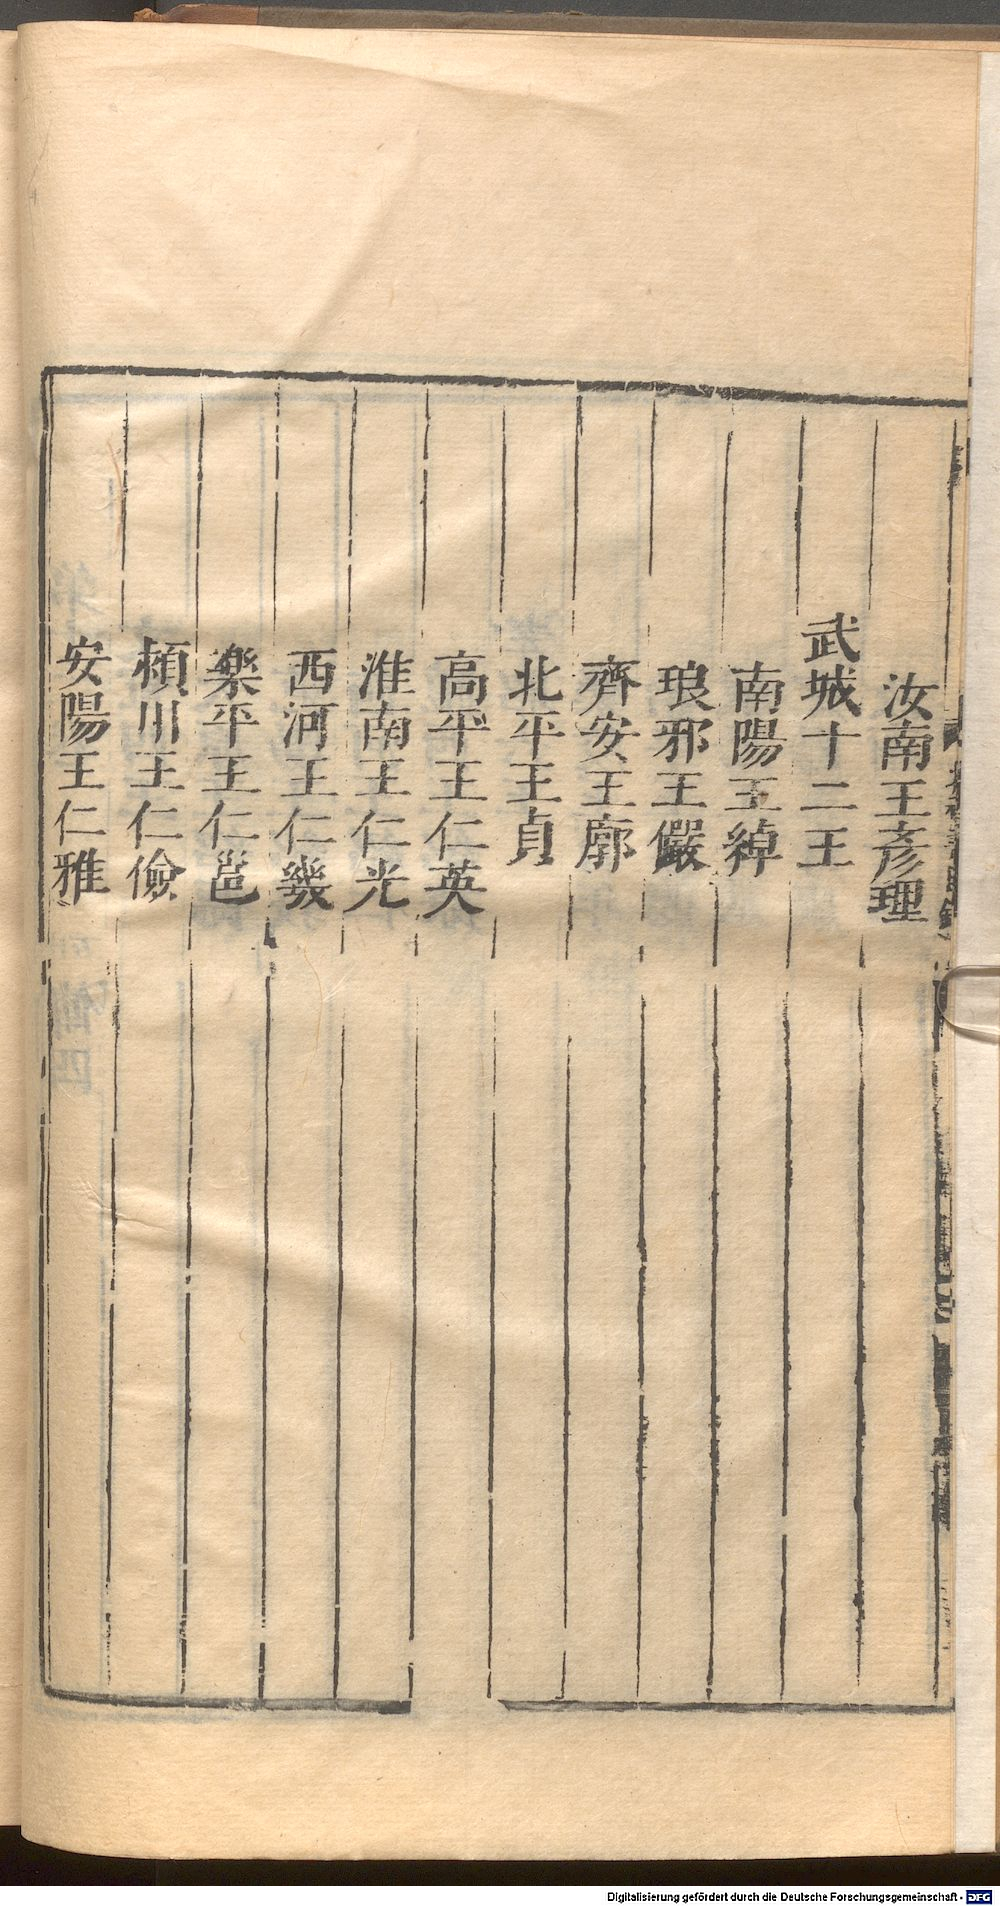 汝南王彥理
武城十二王
南陽王綽
琅邪王儼
齊安王廓
北平王貞
高平王仁英
淮南王仁光
西河王仁幾
樂平王仁邕
潁川王仁儉
安陽王仁雅
Digitalisierung gefördert durch die Deutsche Forschungsgemeinschaft - DFG